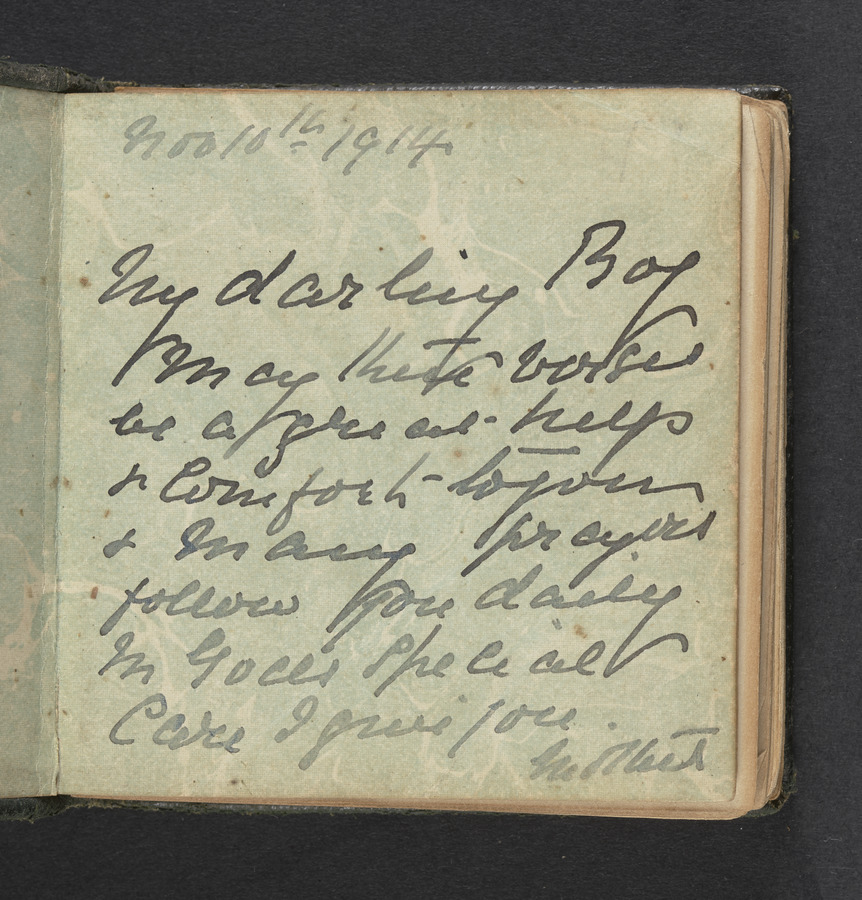 Nov 10th 1914
My darling Boy
May these verses
be a great help
& Comfort to you
& Many prayers
follow you daily
In God's special
Care I give you.
Mother